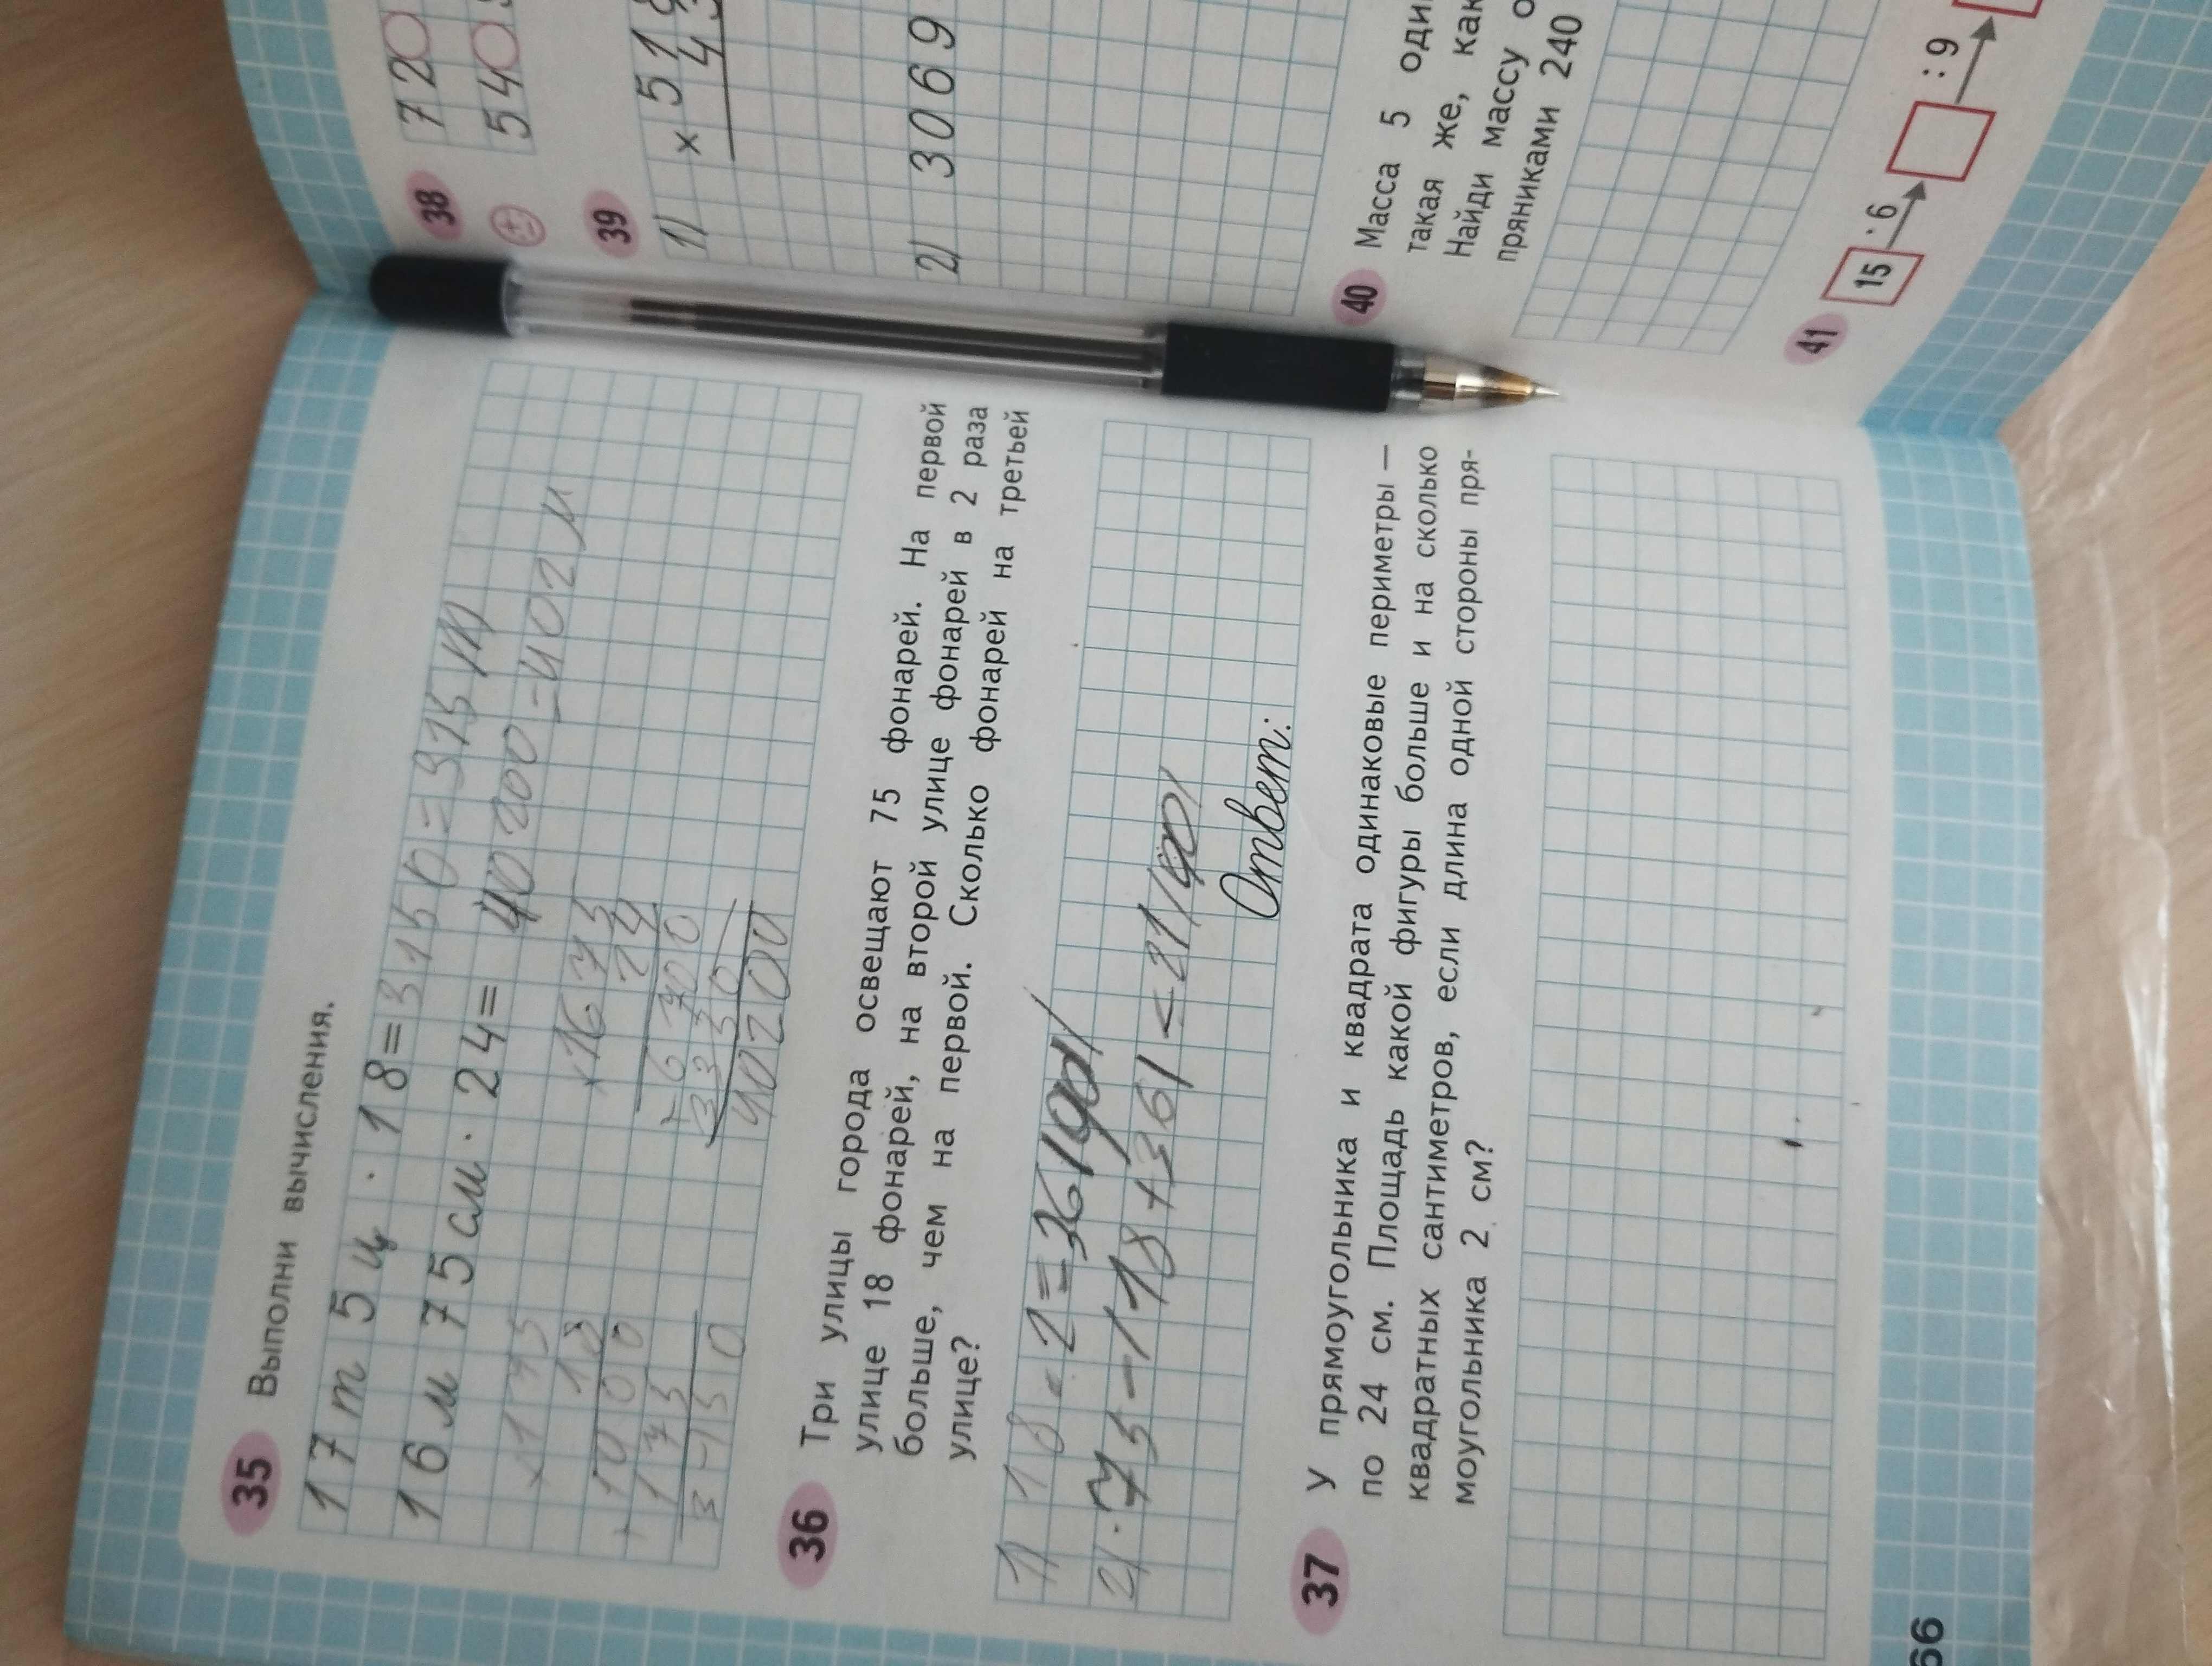 35 Выполни вычисления.
17 т 5 ц · 18 = 3150 = 315 т
16 м 75 см · 24 = 40200 = 402 м
× 1675
24
+ 6700
3350
40200
× 175
18
+ 1400
175
3150
36 Три улицы города освещают 75 фонарей. На первой
улице 18 фонарей, на второй улице фонарей в 2 раза
больше, чем на первой. Сколько фонарей на третьей
улице?
1) 18 · 2 = 36 (ф)
2) 75 - (18 + 36) = 21 (ф)
Ответ:
37 У прямоугольника и квадрата одинаковые периметры —
по 24 см. Площадь какой фигуры больше и на сколько
квадратных сантиметров, если длина одной стороны пря-
моугольника 2 см?
66
38 720
540
39
1) × 51
4
2) 3069
40 Масса 5 оди
такая же, как
Найди массу о
пряниками 240
41 15 · 6 : 9